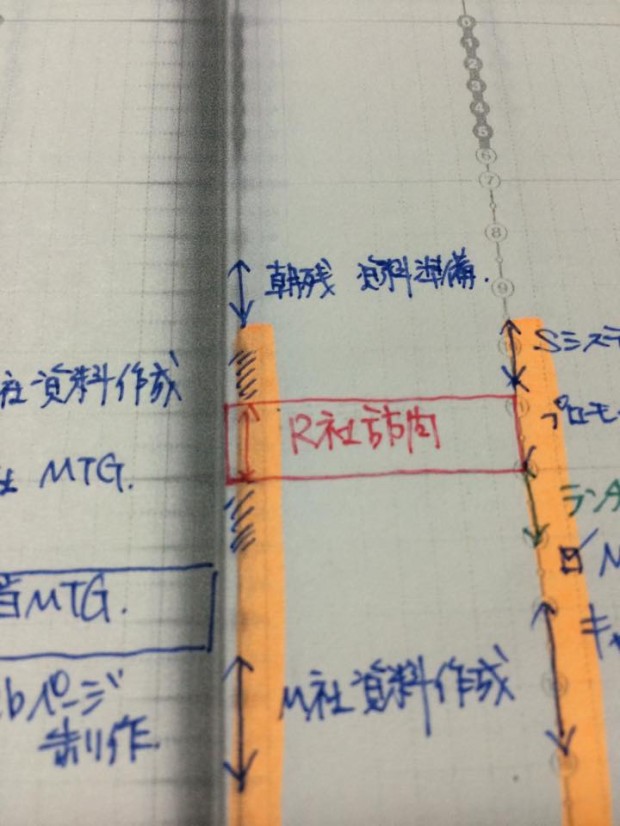 0
1
2
3
4
5
6
7
8
9
朝残 資料準備.
社資料作成
社 MTG.
MTG.
bページ
制作.
R社訪問
M社資料作成
Sミステ
プロモ
ランタ
M
キャ